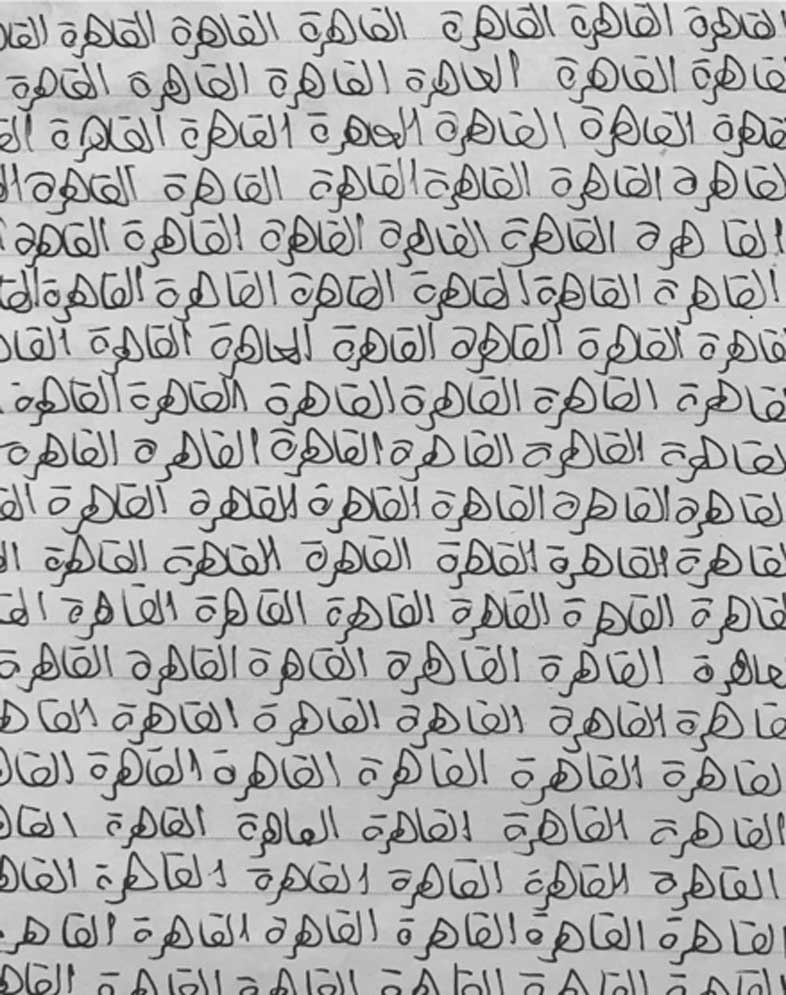 القاهرة القاهرة القاهرة القاهرة القاهرة
القاهرة القاهرة القاهرة القاهرة القاهرة
القاهرة القاهرة القاهرة القاهرة القاهرة
القاهرة القاهرة القاهرة القاهرة القاهرة
القاهرة القاهرة القاهرة القاهرة القاهرة القاهرة
القاهرة القاهرة القاهرة القاهرة القاهرة القاهرة
القاهرة القاهرة القاهرة القاهرة القاهرة
القاهرة القاهرة القاهرة القاهرة القاهرة
القاهرة القاهرة القاهرة القاهرة القاهرة
القاهرة القاهرة القاهرة القاهرة القاهرة
القاهرة القاهرة القاهرة القاهرة القاهرة
القاهرة القاهرة القاهرة القاهرة القاهرة
القاهرة القاهرة القاهرة القاهرة القاهرة
القاهرة القاهرة القاهرة القاهرة
القاهرة القاهرة القاهرة القاهرة
القاهرة القاهرة القاهرة القاهرة القاهرة
القاهرة القاهرة القاهرة القاهرة القاهرة
القاهرة القاهرة القاهرة القاهرة القاهرة
القاهرة القاهرة القاهرة القاهرة القاهرة